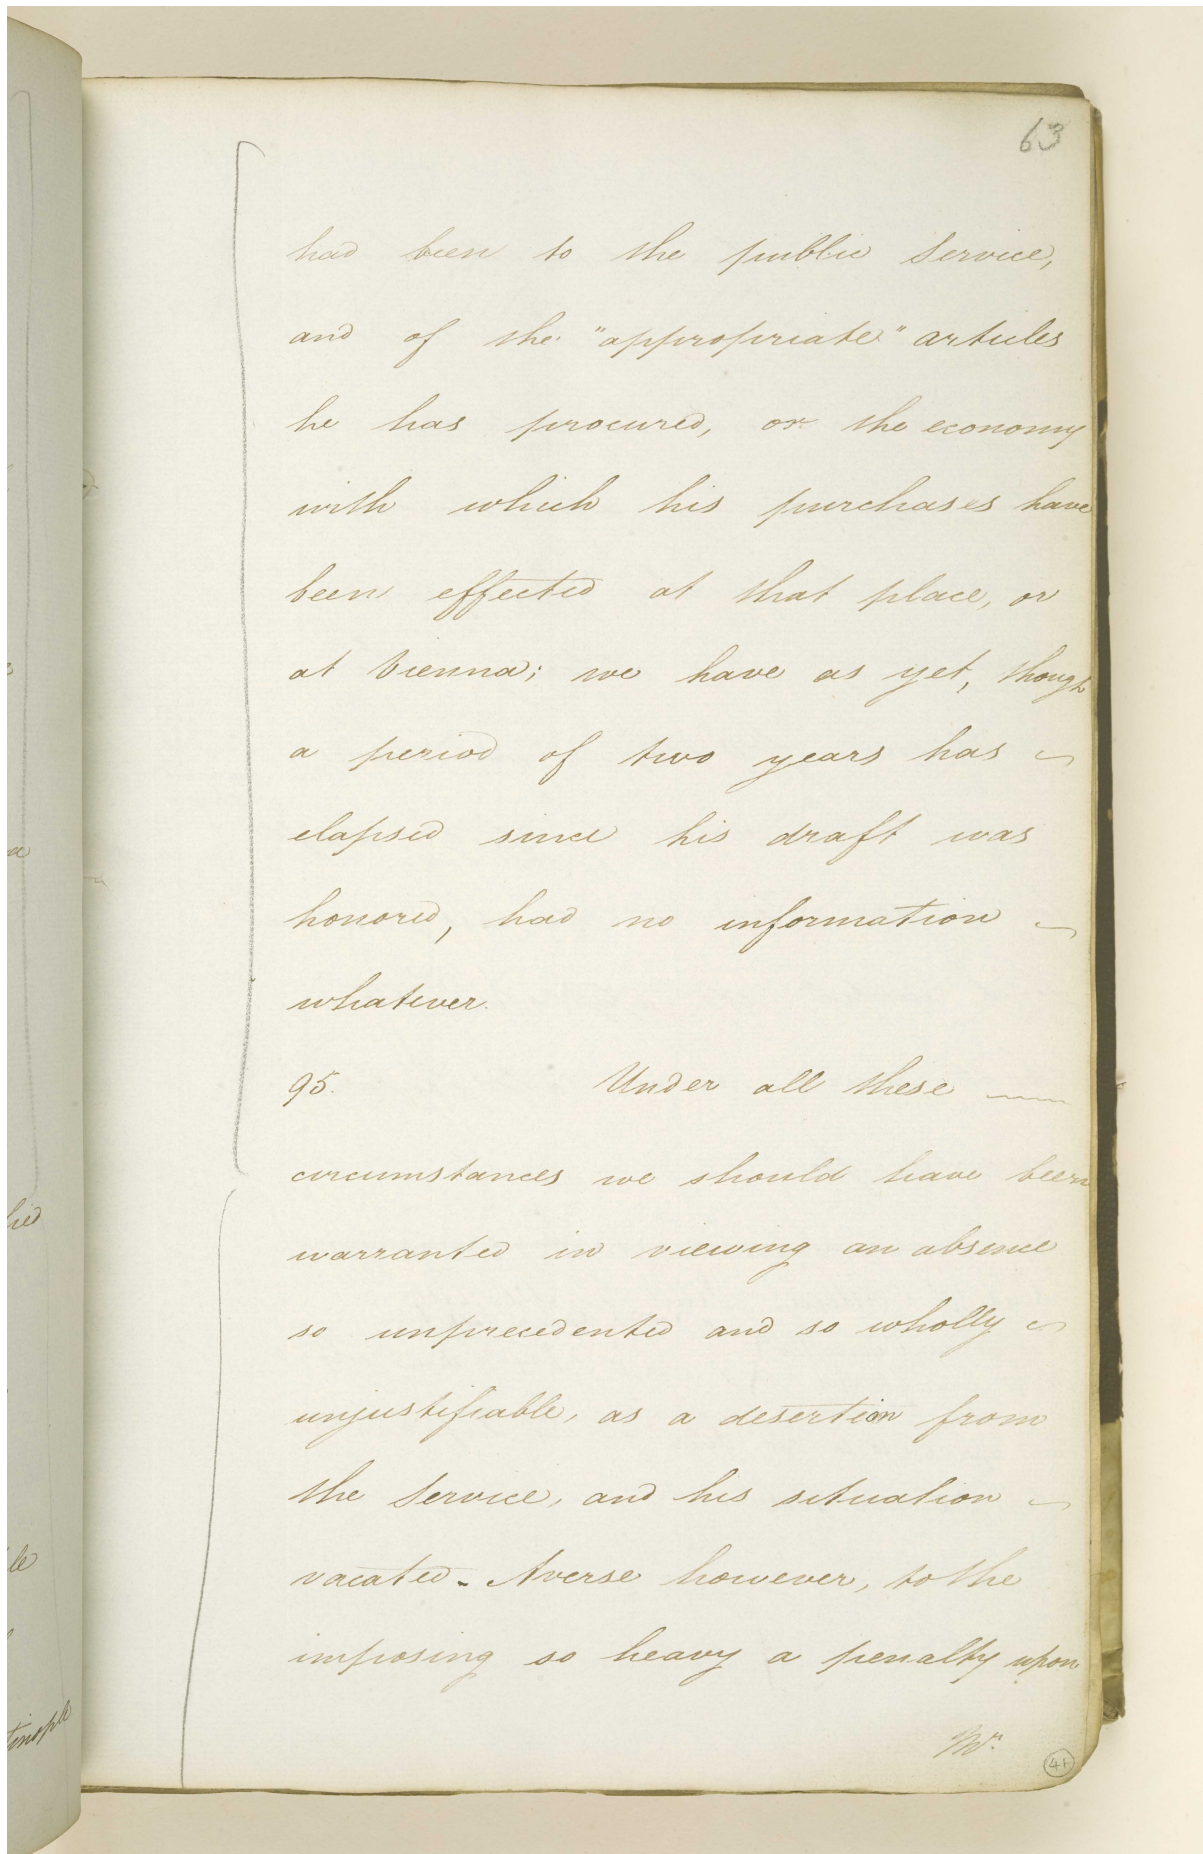 63
had been to the public Service,
and of the "appropriate" articles
he has procured, or the economy
with which his purchases have
been effected at that place, or
at Vienna; we have as yet, though
a period of two years has
elapsed since his draft was
honored, had no information
whatever.
95. Under all these
circumstances we should have been
warranted in viewing an absence
so unprecedented and so wholly
unjustifiable, as a desertion from
the Service, and his situation
vacated. Averse however, to the
imposing so heavy a penalty upon
Mr.
41